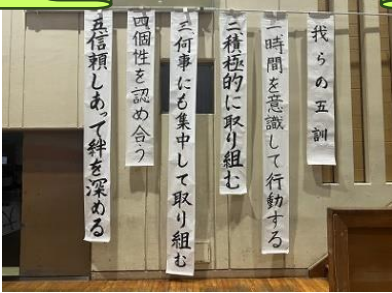 我らの五訓
一時間を意識して行動する
二積極的に取り組む
三何事にも集中して取り組む
四個性を認め合う
五信頼しあって絆を深める